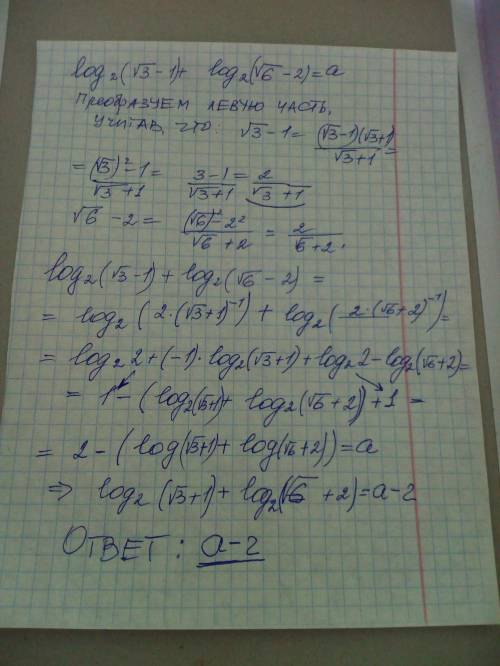 log₂(√3-1)+ log₂(√6-2)=a
Преобразуем левую часть,
учитав, что: √3-1= (√3-1)(√3+1)/√3+1 =
= (√3)²-1/√3+1 = 3-1/√3+1 = 2/√3+1
√6-2= (√6)²-2²/√6+2 = 2/√6+2.
log₂(√3-1)+log₂(√6-2) =
= log₂(2·(√3+1)⁻¹)+ log₂(2·(√6+2)⁻¹)=
= log₂2+(-1)·log₂(√3+1)+log₂2-log₂(√6+2)=
= 1-(log₂(√3+1)+ log₂(√6+2))+1 =
= 2-(log(√3+1)+log(√6+2))=a
⇒ log₂(√3+1)+log₂(√6+2)=a-2
Ответ: a-2